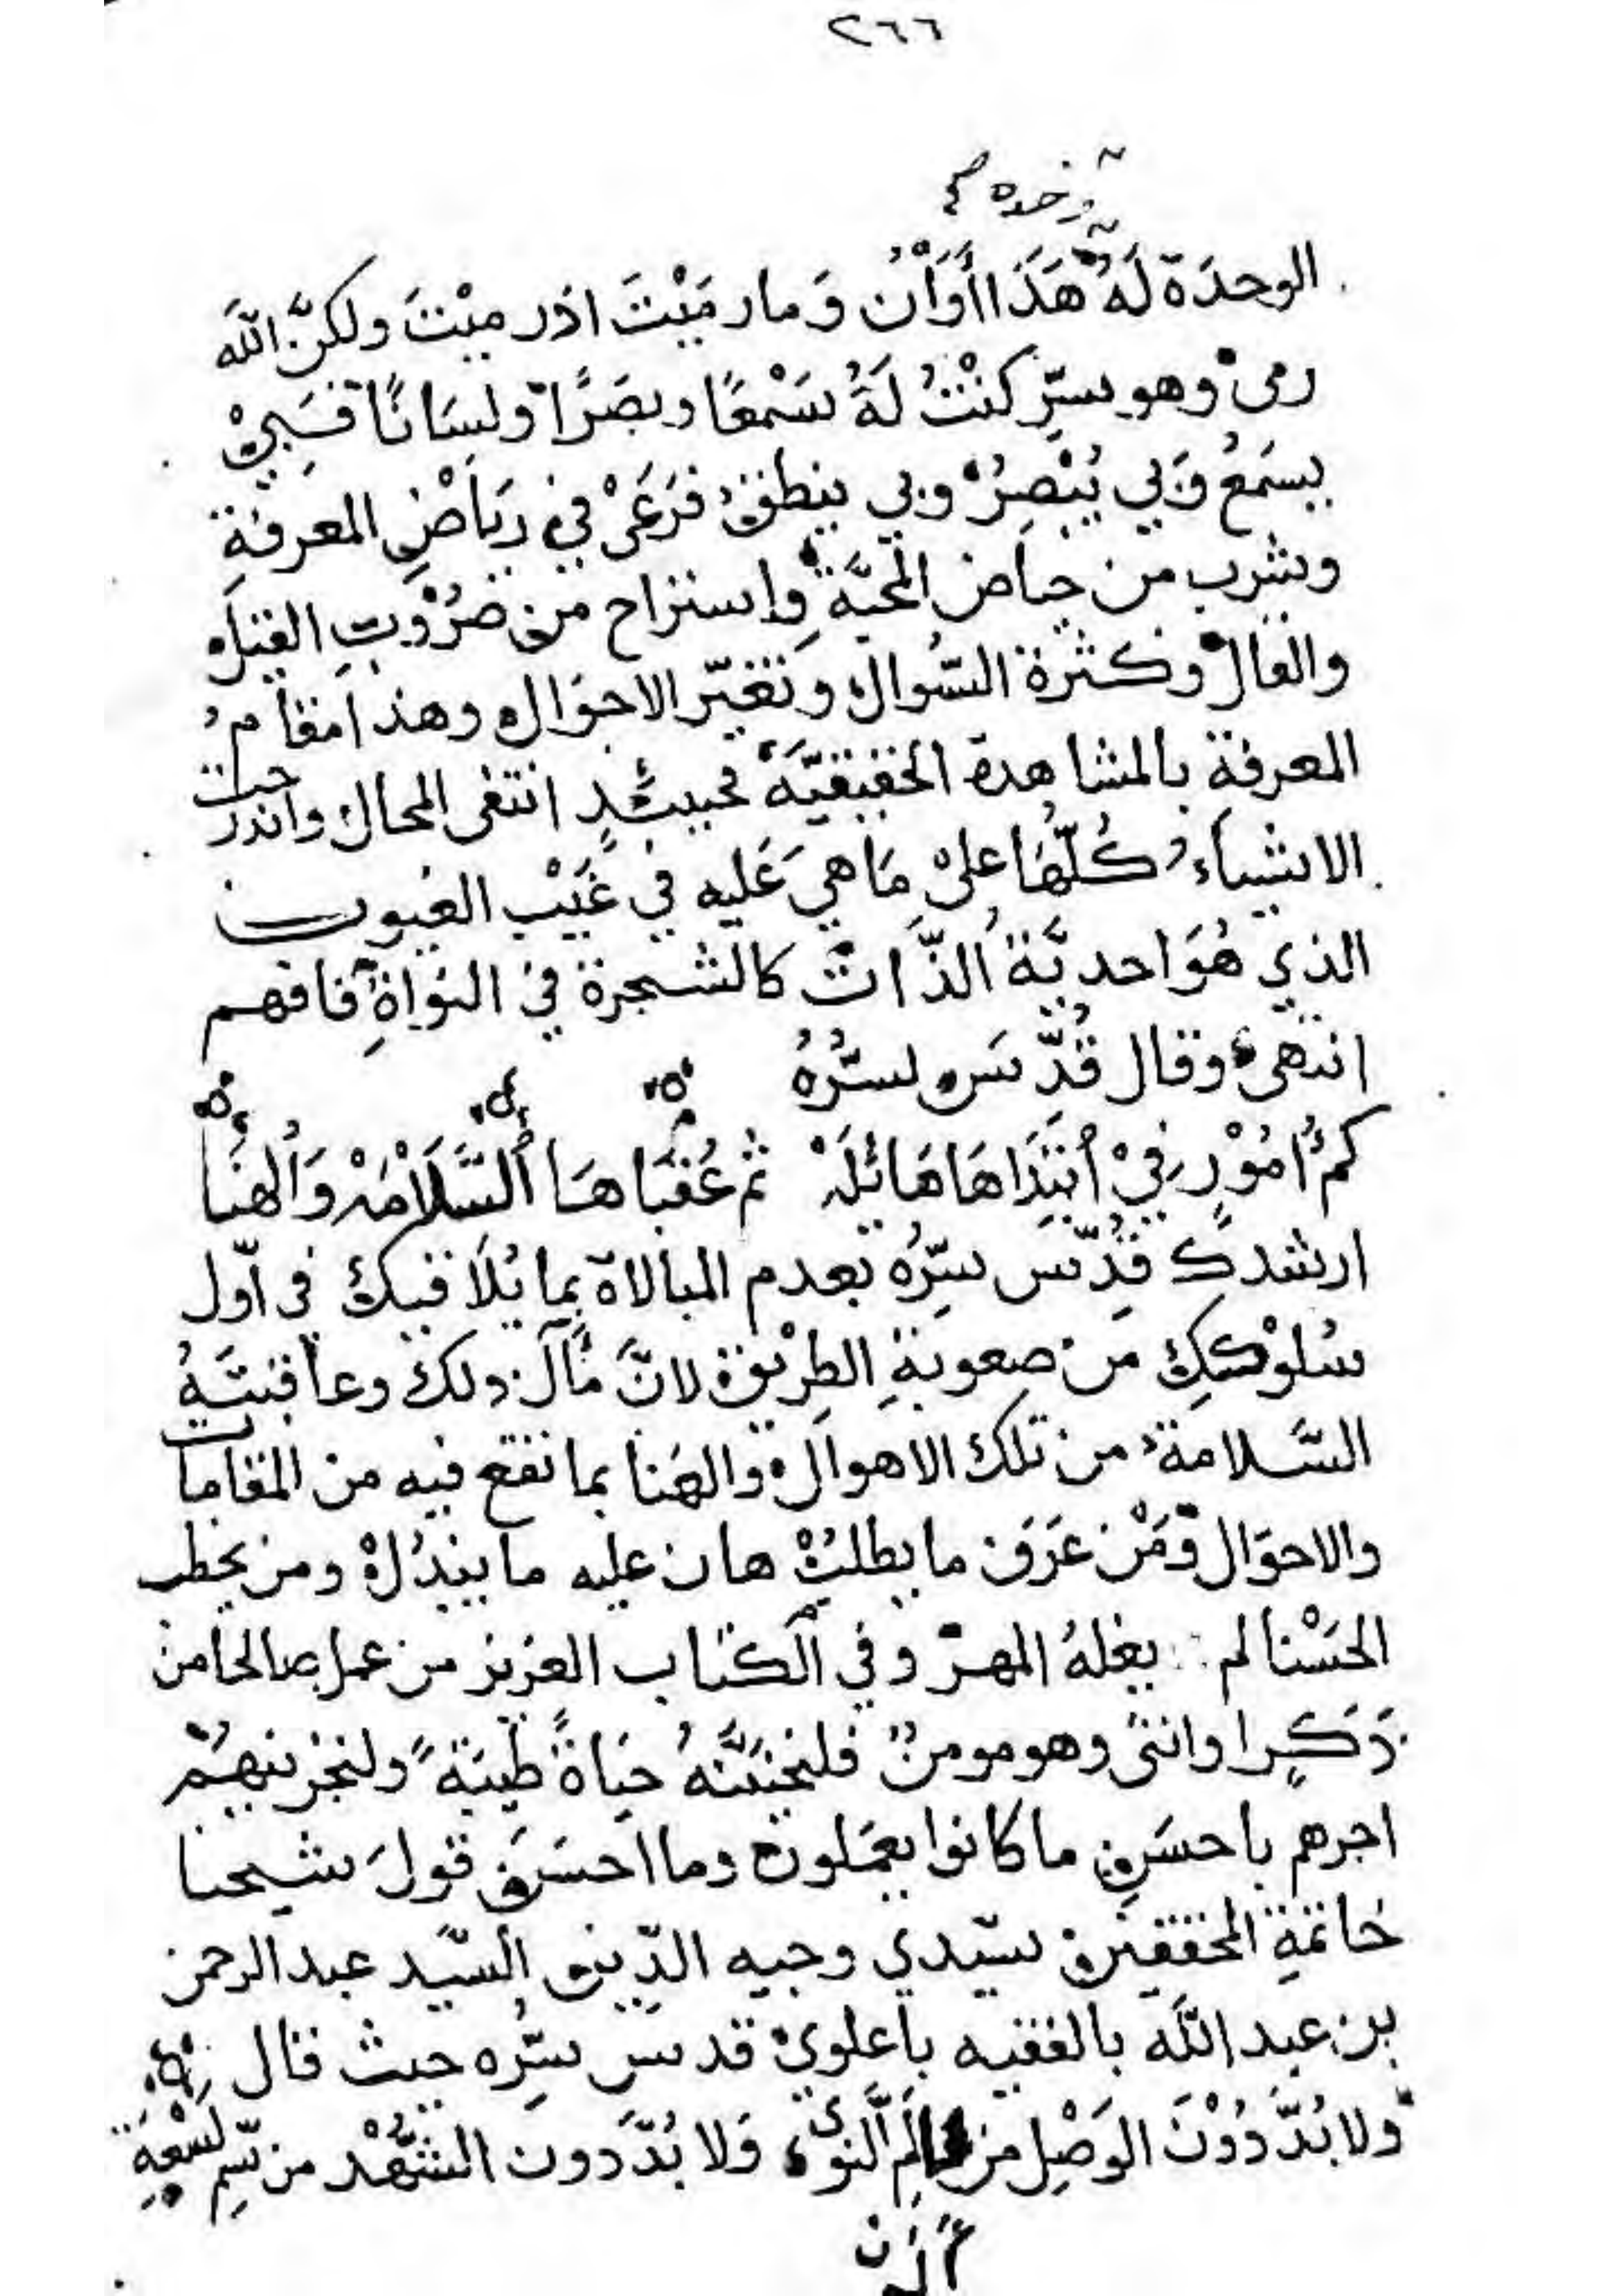 ٢٦٦
وخده
الوحدَة لَهُ هَذَا أَوَانْ وَمارمَيْتَ اذرميْتَ ولكنَّ اللَه
رمى وهو سرّ كنْتُ لَهُ سَمْعًا وبصَرًا ولسَانًا فَبِيْ
يسمَعُ وَبي يُبْصِرُ وبي ينطق فَرَعَىْ في رِيَاضِ المعرفةِ
وشرب من حياض المحبَّة وإستراح من ضرُوبِ القيل
والقال وكثرة السُّوال وتغيّر الاحوَال وهذا مقامُ
المعرفة بالمشاهدة الحقيقيَّة فحينئذٍ انتفى المحال واندرجت
الاشياءُ كُلّهَا على مَا هيَ عَليه في غَيْب الغيوب
الذي هُوَ احديَّة الذَّات كالشجرة في النوَاةِ فافهم
انتهى وقال قُدِّس سرُّهُ
كمْ امُوْرٍ فيْ اُبْتِدَاهَا هَائلَهْ ثم عُقْبَاهَا اُلسَّلَامَهْ وَاُلهنَا
ارشدك قدِّس سِرُّهُ بعدم المبالاة بما يُلَاقيك فى اوّل
سُلوْككِ من صعوبةِ الطِرْيق لانَّ مآلَ ذلك وعاقبتَهُ
السَّلامة من تلك الاهوال والهَنا بما تقع فيه من المقامات
والاحوَال وَمَنْ عَرَفَ ما يطلبُ هان عليه ما يبذُلْ ومن يخطب
الحَسْنا لم يغلهُ المهرّ وفي الكتاب العزيز من عمل صالحا من
ذَكَرٍ او انثى وهو مومنٌ فلنحيَنَّهُ حيَاةً طيّبَةً ولنجزينهُمْ
اجرهم باحسَنِ ما كانوا يعمَلون وما احسَنَ قولَ شيخنا
خاتمةِ المحققين سيّدي وجيه الدّين السيّد عبدالرحمن
بن عبد اللَه بالفقيه باعلوي قدس سِرُّه حيث قال
ولا بُدَّ دُوْنَ الوَصْلِ من أَلَمِ النوى وَلا بُدَّ دون الشَّهْد من سّمِ لسْعةِ